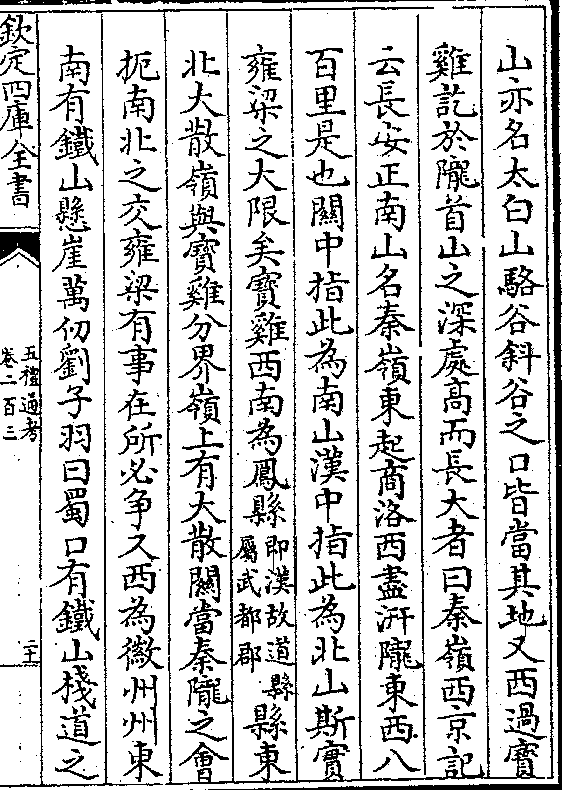 山亦名太白山駱谷斜谷之口皆當其地又西過寶
雞訖於隴首山之深處高而長大者曰秦嶺西京記
云長安正南山名秦嶺東起商洛西盡汧隴東西八
百里是也關中指此為南山漢中指此為北山斯實
雍梁之大限矣寶雞西南為鳳縣即漢故道縣屬武都郡縣東
北大散嶺與寶雞分界嶺上有大散關當秦隴之會
扼南北之交雍梁有事在所必争又西為徽州州東
南有鐵山懸崖萬仞劉子羽曰蜀口有鐵山棧道之
欽定四庫全書
五禮通考
卷二百三
二十